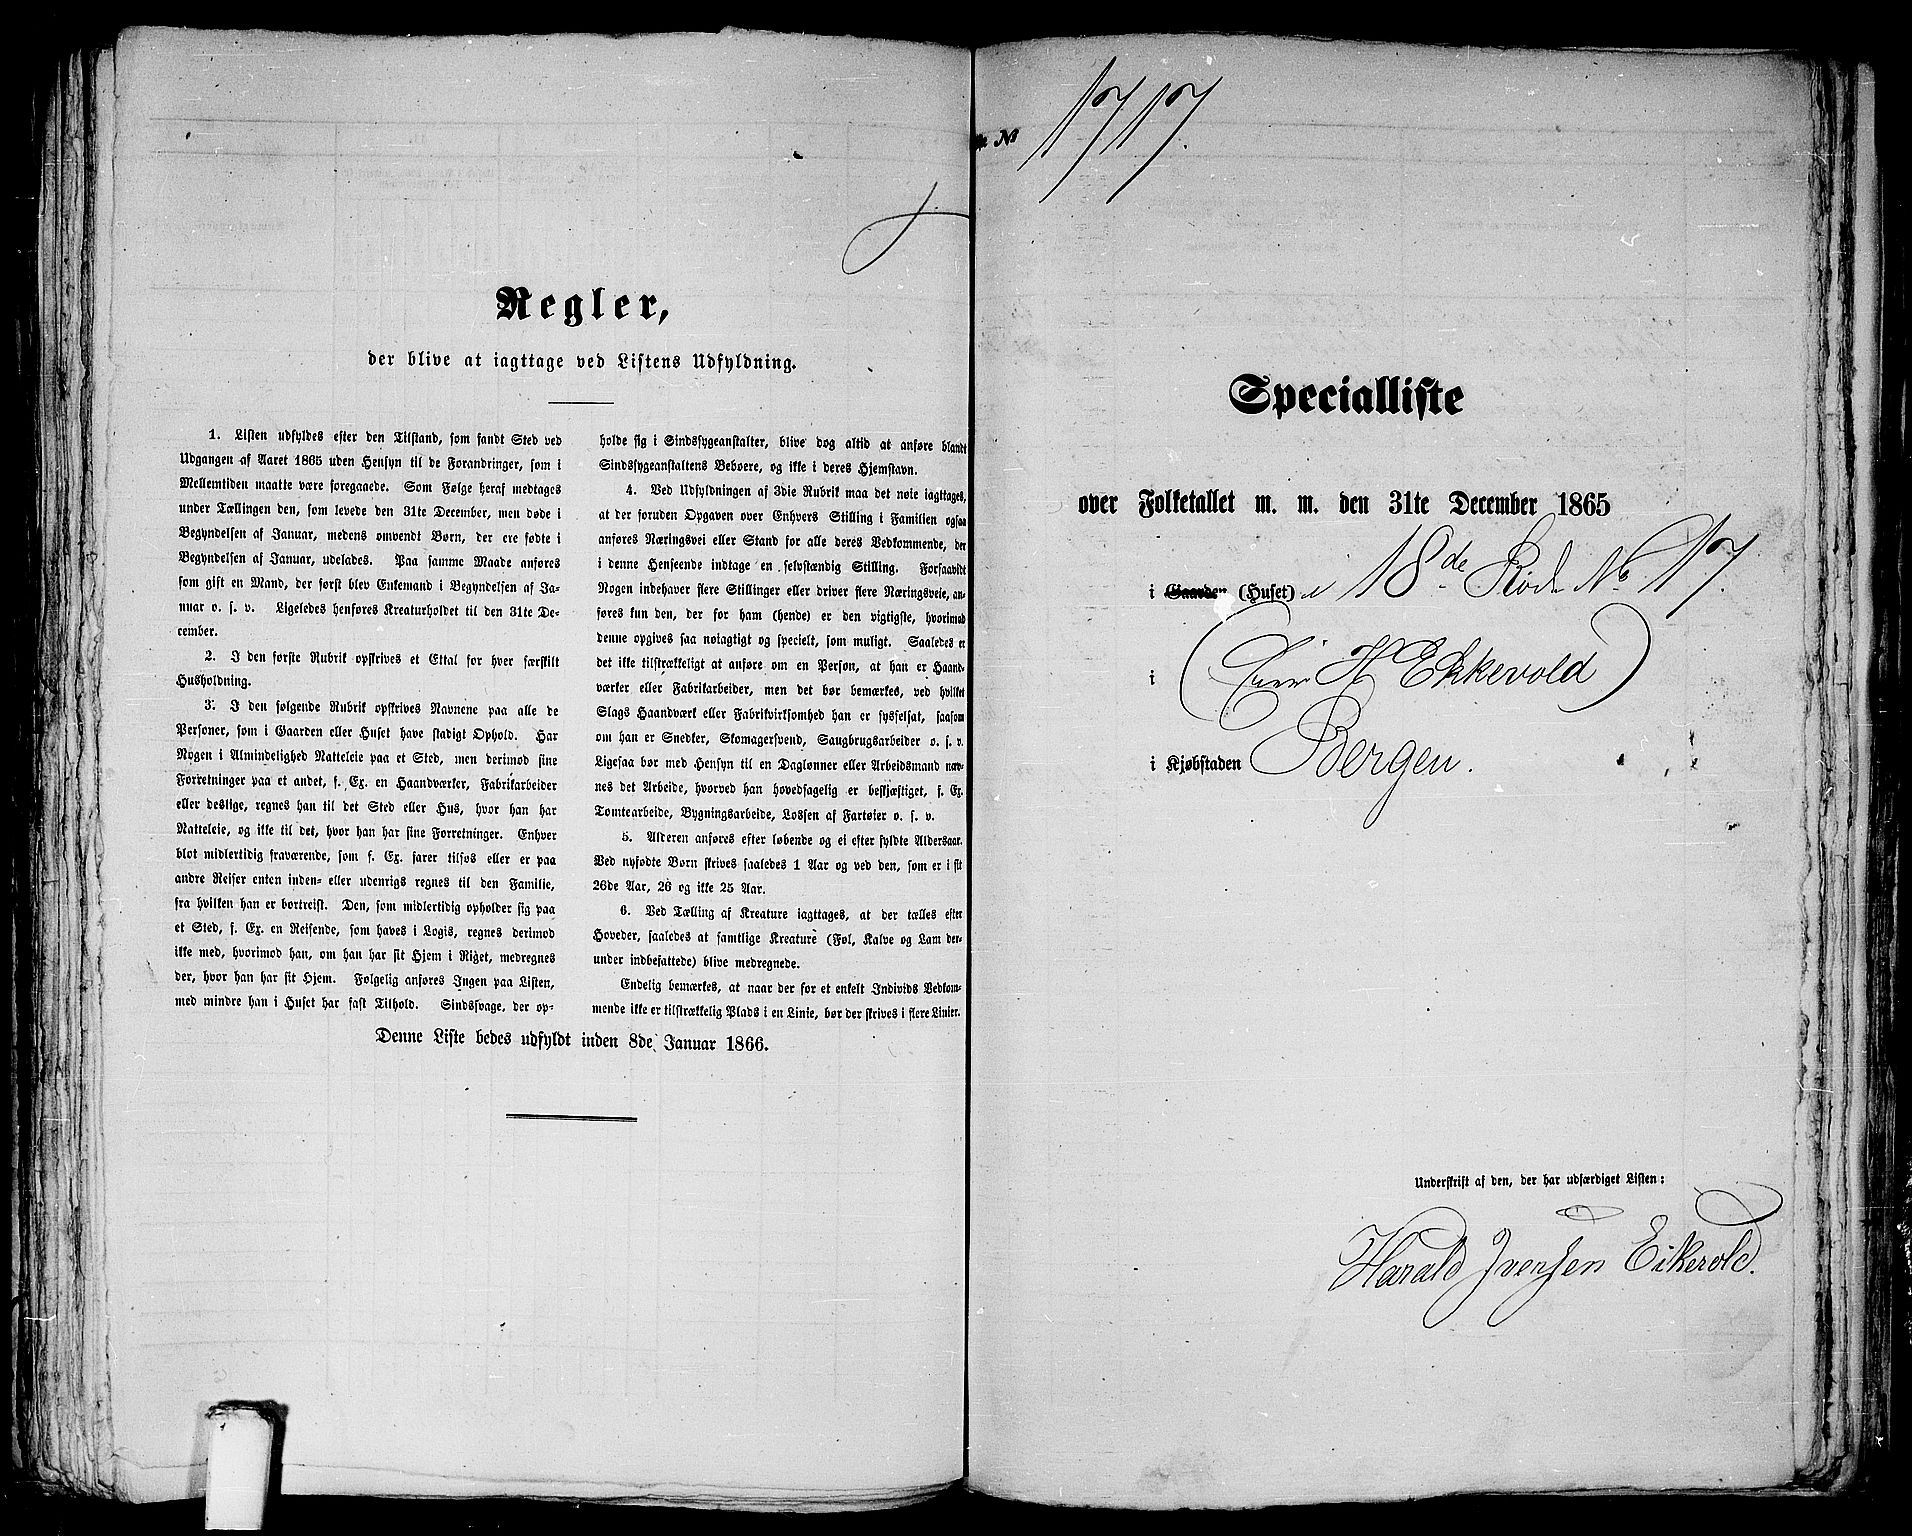 Regler,
der blive at iagttage ved Listens Udfyldning.
1. Listen udfyldes efter den Tilstand, som fandt Sted ved
Udgangen af Aaret 1865 uden Hensyn til de Forandringer, som i
Mellemtiden maatte være foregaaede. Som Følge heraf medtages
under Tællingen den, som levede den 31te December, men døde i
Begyndelsen af Januar, medens omvendt Børn, der ere fødte i
Begyndelsen af Januar, udelades. Paa samme Maade anføres
som gift en Mand, der først blev Enkemand i Begyndelsen af Ja-
nuar o. s. v. Ligeledes henføres Kreaturholdet til den 31te De-
cember.
2. I den første Rubrik opskrives et Ettal for hver særskilt
Husholdning.
3. I den følgende Rubrik opskrives Navnene paa alle de
Personer, som i Gaarden eller Huset have stadigt Ophold. Har
Nogen i Almindelighed Natteleie paa et Sted, men derimod sine
Forretninger paa et andet, f. Ex. en Haandværker, Fabrikarbeider
eller deslige, regnes han til det Sted eller Hus, hvor han har
Natteleie, og ikke til det, hvor han har sine Forretninger. Enhver
blot midlertidig fraværende, som f. Ex. farer tilsøs eller er paa
andre Reiser enten inden- eller udenrigs regnes til den Familie,
fra hvilken han er bortreist. Den, som midlertidig opholder sig paa
et Sted, f. Ex. en Reisende, som haves i Logis, regnes derimod
ikke med, hvorimod han, om han har sit Hjem i Riget, medregnes
der, hvor han har sit Hjem. Følgelig anføres Ingen paa Listen,
med mindre han i Huset har fast Tilhold. Sindssvage, der op-
holde sig i Sindssygeanstalter, blive dog altid at anføre blandt
Sindssygeanstaltens Beboere, og ikke i deres Hjemstavn.
4. Ved Udfyldningen af 3die Rubrik maa det nøie iagttages,
at der foruden Opgaven over Enhvers Stilling i Familien ogsaa
anføres Næringsvei eller Stand for alle deres Vedkommende, der
i denne Henseende indtage en selvstændig Stilling. Forsaavidt
Nogen indehaver flere Stillinger eller driver flere Næringsveie, an-
føres kun den, der for ham (hende) er den vigtigste, hvorimod
denne opgives saa nøiagtigt og specielt, som muligt. Saaledes er
det ikke tilstrækkeligt at anføre om en Person, at han er Haand-
værker eller Fabrikarbeider, men det bør bemærkes, ved hvilket
Slags Haandværk eller Fabrikvirksomhed han er sysselsat, saasom
om han er Snedker, Skomagersvend, Saugbrugsarbeider o. s. v.
Ligesaa bør med Hensyn til en Daglønner eller Arbeidsmand næv-
nes det Arbeide, hvorved han hovedsagelig er beskjæftiget, f. Ex.
Tomtearbeide, Bygningsarbeide, Lossen af Fartøier o. s. v.
5. Alderen anføres efter løbende og ei efter fyldte Aldersaar.
Ved nyfødte Børn skrives saaledes 1 Aar og ved den, som er i sit
26de Aar, 26 og ikke 25 Aar.
6. Ved Tælling af Kreature iagttages, at der tælles efter
Hoveder, saaledes at samtlige Kreature (Føl, Kalve og Lam der-
under indbefattede) blive medregnede.
Endelig bemærkes, at naar der for et enkelt Individs Vedkom-
mende ikke er tilstrækkelig Plads i en Linie, bør der skrives i flere Linier.
Denne Liste bedes udfyldt inden 8de Januar 1866.
№ 1717.
Specialliste
over Folketallet m. m. den 31te December 1865
i Gaarden (Huset) 18de Rode No 17.
i ( H Ekkevold )
i Kjøbstaden Bergen.
Underskrift af den, der har udfærdiget Listen:
Harald Ivensen Eikevold.